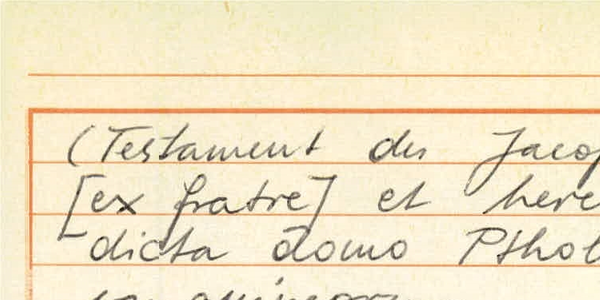 (Testament des Jacop
[ex fratre] et here
dicta domo Pthol